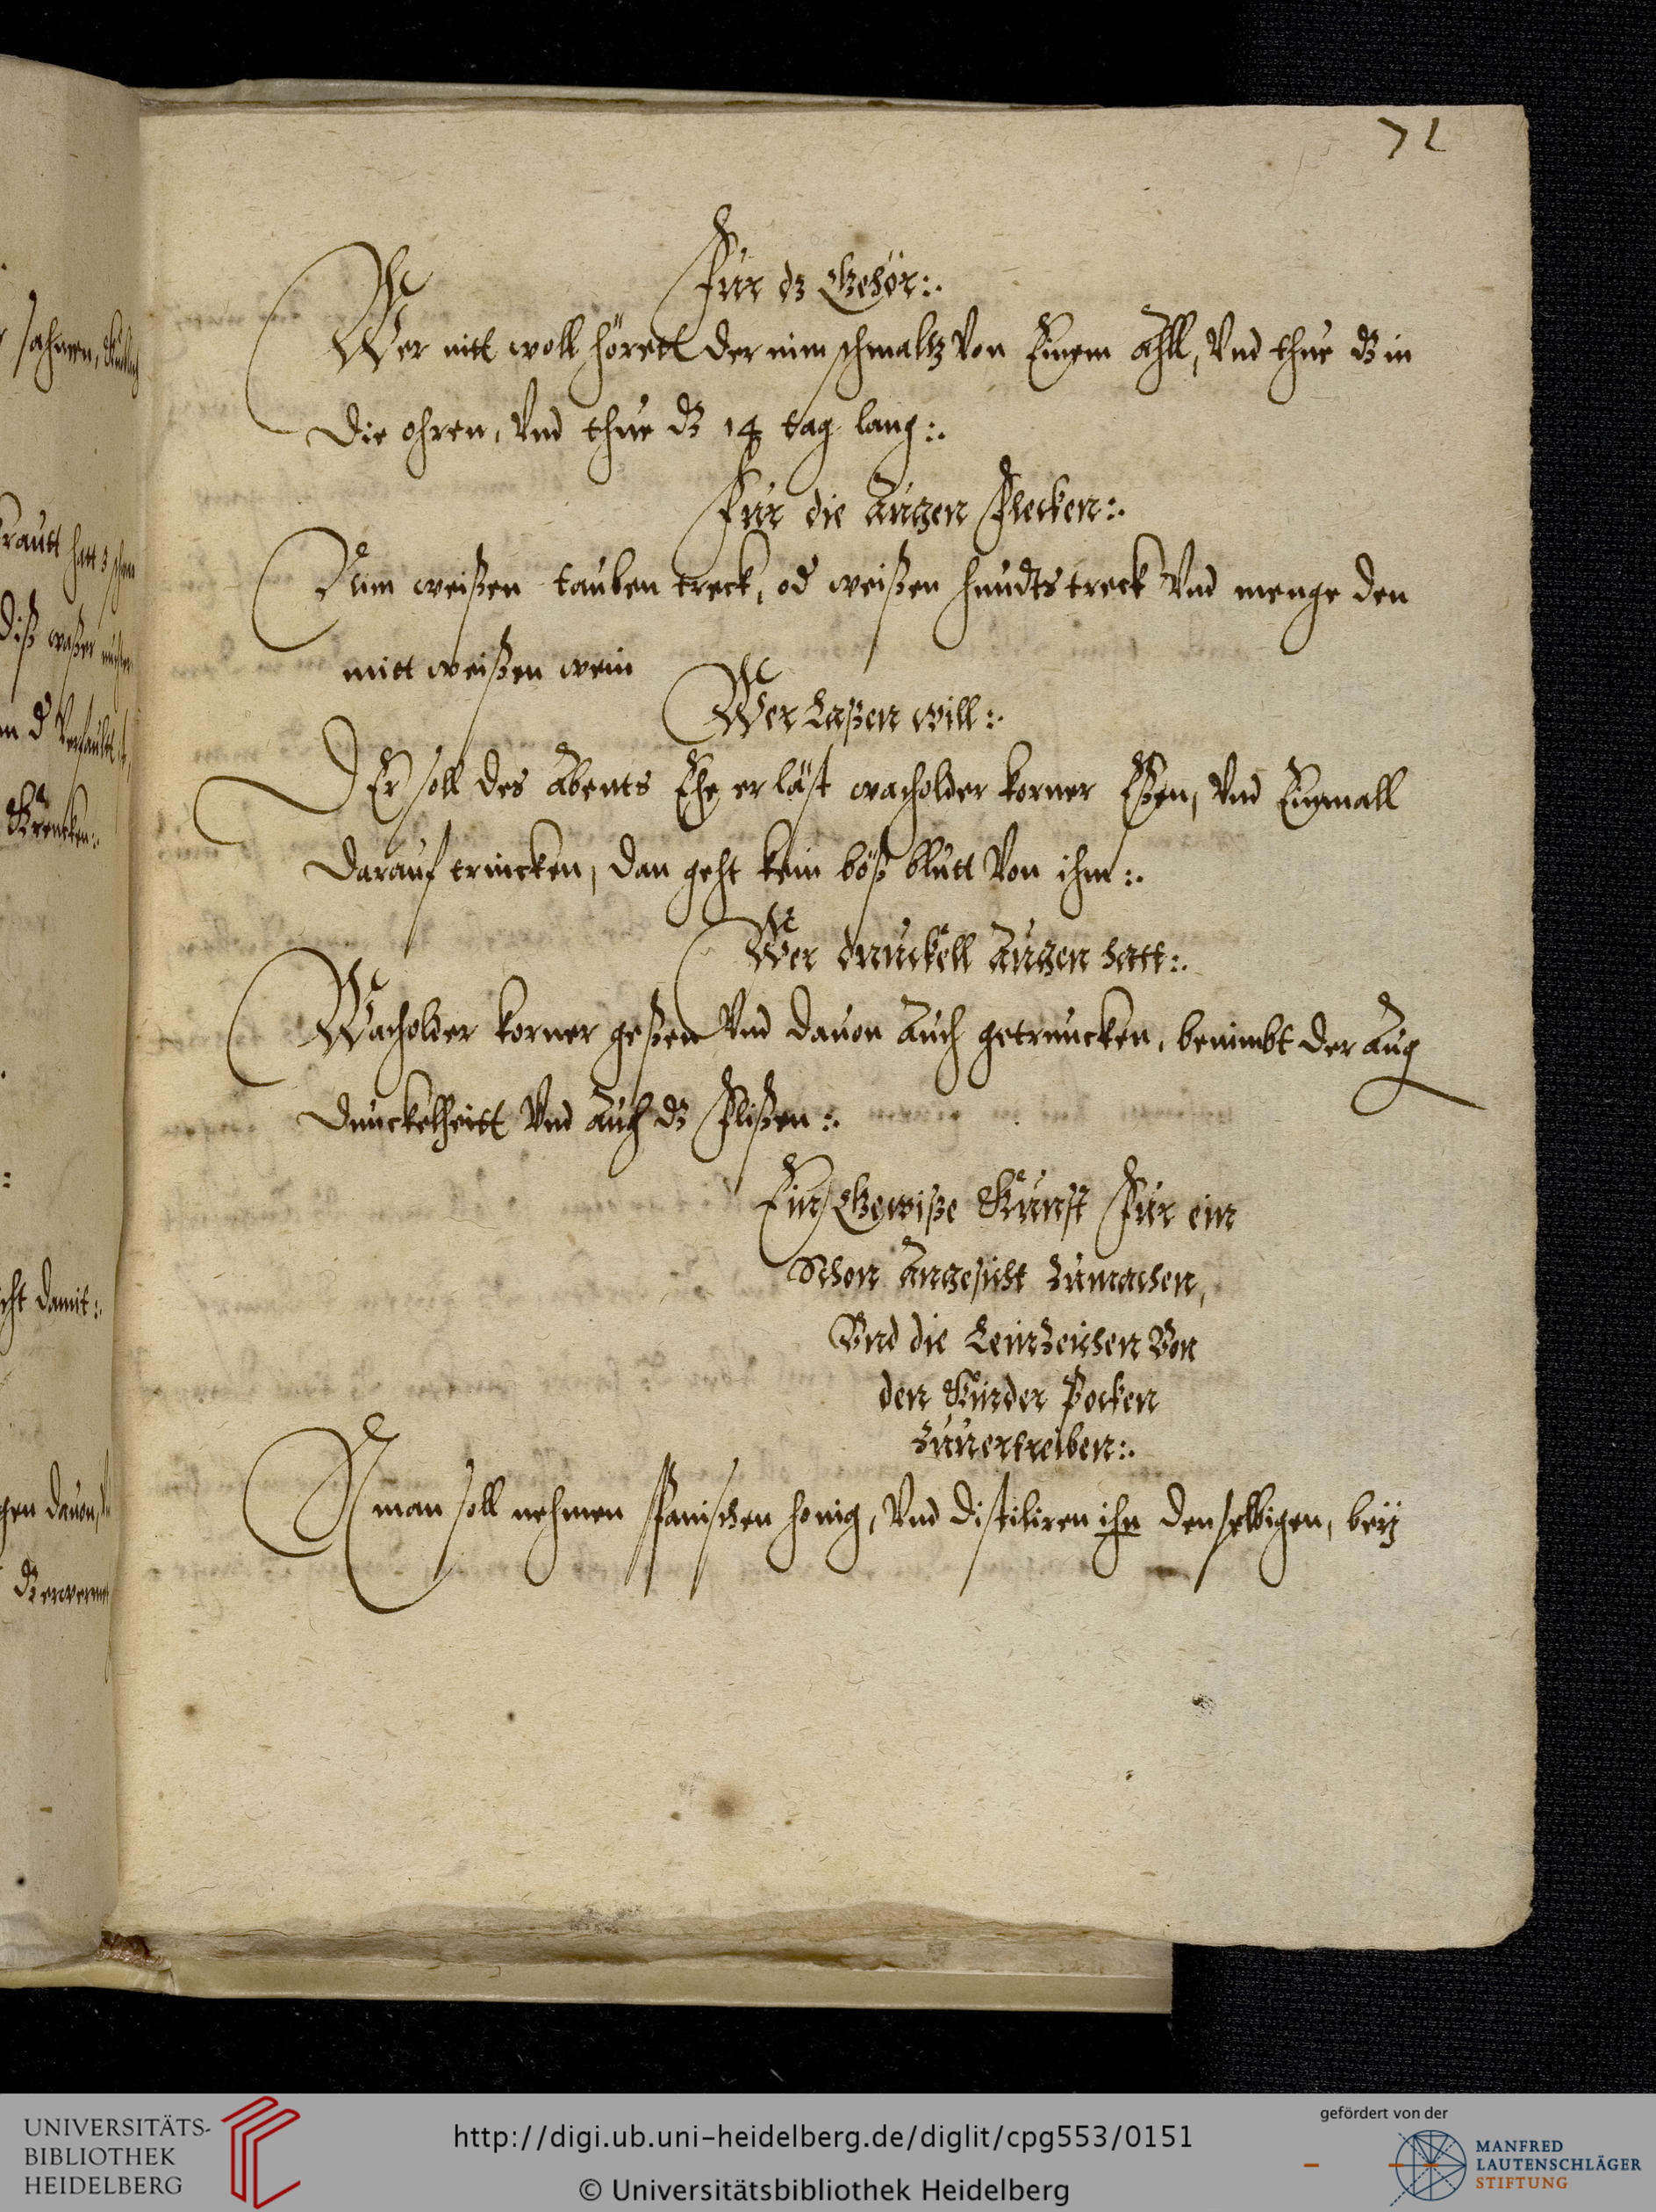 71
Für dz Gehör:.
Wer nitt woll hörett der nim schmaltz Von Einem Ahll, Vnd thue dz in
die ohren, Vnd thue dz 14 tag lang:.
Für die Augen Flecken:.
Nim weißen tauben treck, od weißen hundts treck Vnd menge den
mitt weißen wein
Wer Laßen will:.
DEr soll des Abents Ehe er läst wacholder korner Eßen, Vnd Einmall
darauf trincken, dan geht kein böß blutt Von ihm:.
Wer dunckell Augen hatt:.
Wacholder korner geßen Vnd dauon Auch getruncken, benimbt der Aug
dunckelheitt Vnd Auch dz Flißen:.
Ein Gewiße Kunst Für ein
Schon Angesicht Zumachen,
Vnd die Zeichen Von
den Kinder Pocken
Zuuertreiben:.
Man soll nehmen spanischen honig, Vnd distiliren ihn denselbigen, beÿ
sahnen,
krautt hatt
diß waßer
damit:.
dauon,
UNIVERSITÄTS-
BIBLIOTHEK
HEIDELBERG
http://digi.ub.uni-heidelberg.de/diglit/cpg553/0151
© Universitätsbibliothek Heidelberg
gefördert von der
MANFRED
LAUTENSCHLÄGER
STIFTUNG